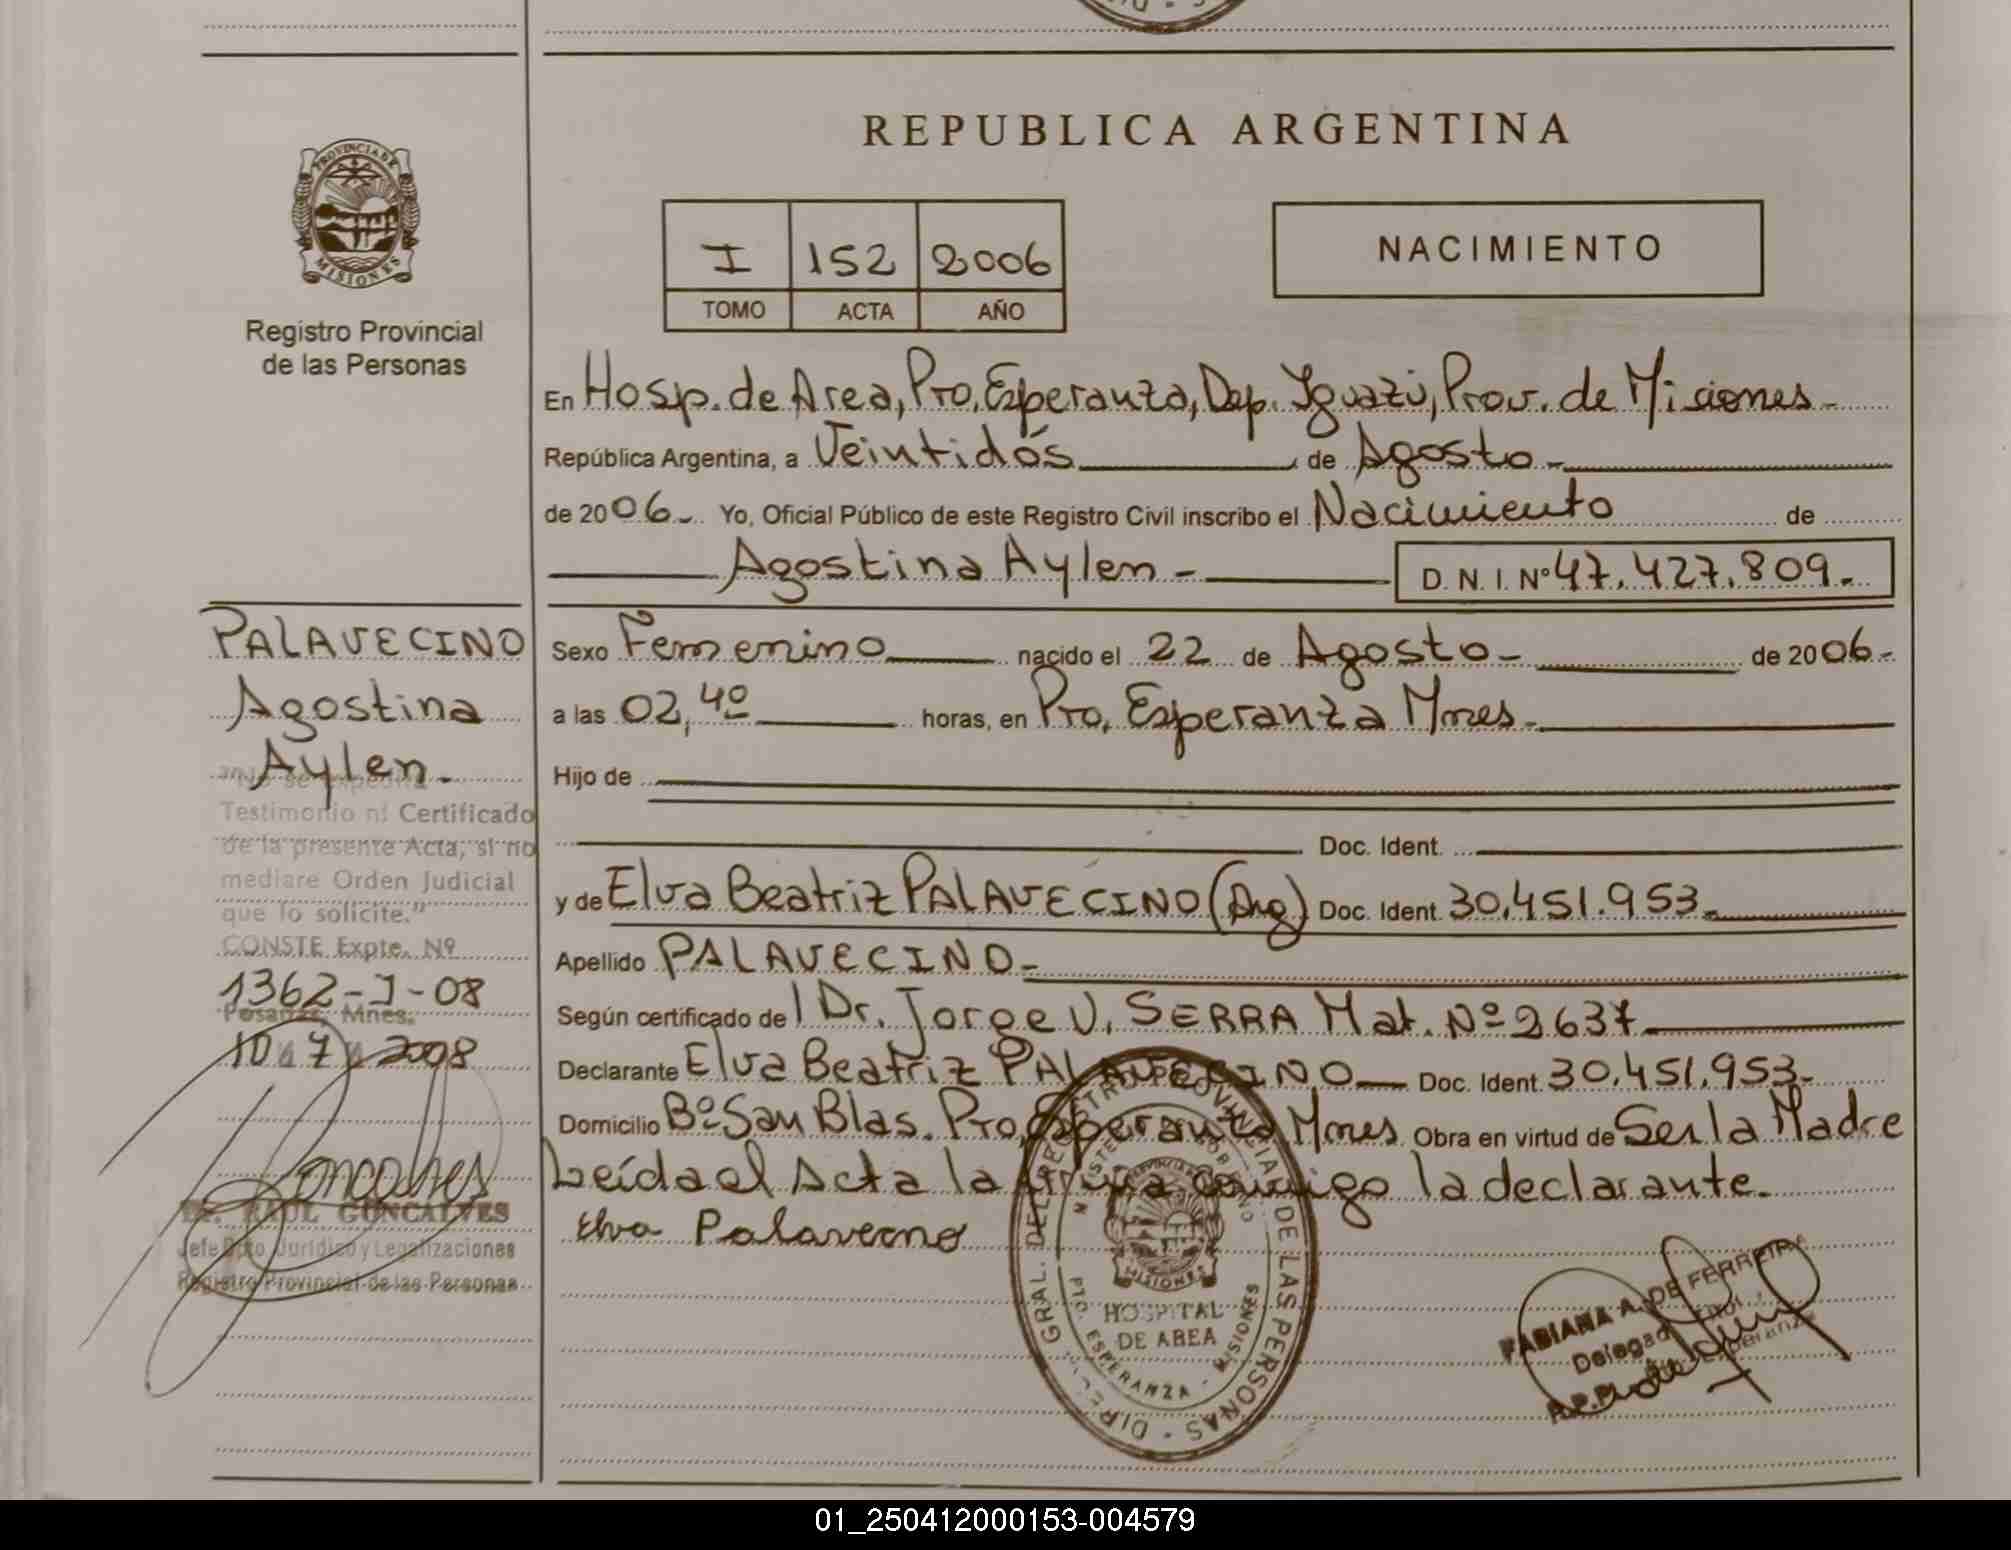 REPUBLICA ARGENTINA
PROVINCIA DE
MISIONES
Registro Provincial
de las Personas
I 152 2006
TOMO ACTA AÑO
NACIMIENTO
En Hosp. de Area, Pto. Esperanza, Dep. Iguazú, Prov. de Misiones-
República Argentina, a Veintidós de Agosto-
de 2006- Yo, Oficial Público de este Registro Civil inscribo el Nacimiento de
Agostina Aylen- D. N. I. Nº 47.427.809.-
Sexo Femenino nacido el 22 de Agosto- de 2006-
a las 02,40 horas, en Pto. Esperanza Mnes-
Hijo de
Doc. Ident.
y de Elva Beatriz PALAVECINO (Arg) Doc. Ident. 30.451.953-
Apellido PALAVECINO-
Según certificado del Dr. Jorge V. SERRA Mat. Nº 2637
Declarante Elva Beatriz PALAVECINO Doc. Ident. 30.451.953-
Domicilio Bº San Blas. Pto. Esperanza, Mnes. Obra en virtud de Ser la Madre
Leída el Acta la firma conmigo la declarante.
Elva Palavecino
PALAVECINO
Agostina
Aylen-
"No se expedirá
Testimonio ni Certificado
de la presente Acta, si no
mediare Orden Judicial
que lo solicite."
CONSTE Expte. Nº
1362-J-08
Posadas, Mnes.
10 7 2008
Goncalves
Dr. RAUL GONCALVES
Jefe Dpto. Jurídico y Legalizaciones
Registro Provincial de las Personas
DIREC. GRAL. DEL REGISTRO PROVINCIAL DE LAS PERSONAS
PROVINCIA DE
MISIONES
HOSPITAL
DE AREA
PTO. ESPERANZA - MISIONES
FABIANA A. DE FERREIRA
Delegada
R.P.P. Pto. Esperanza
01_250412000153-004579